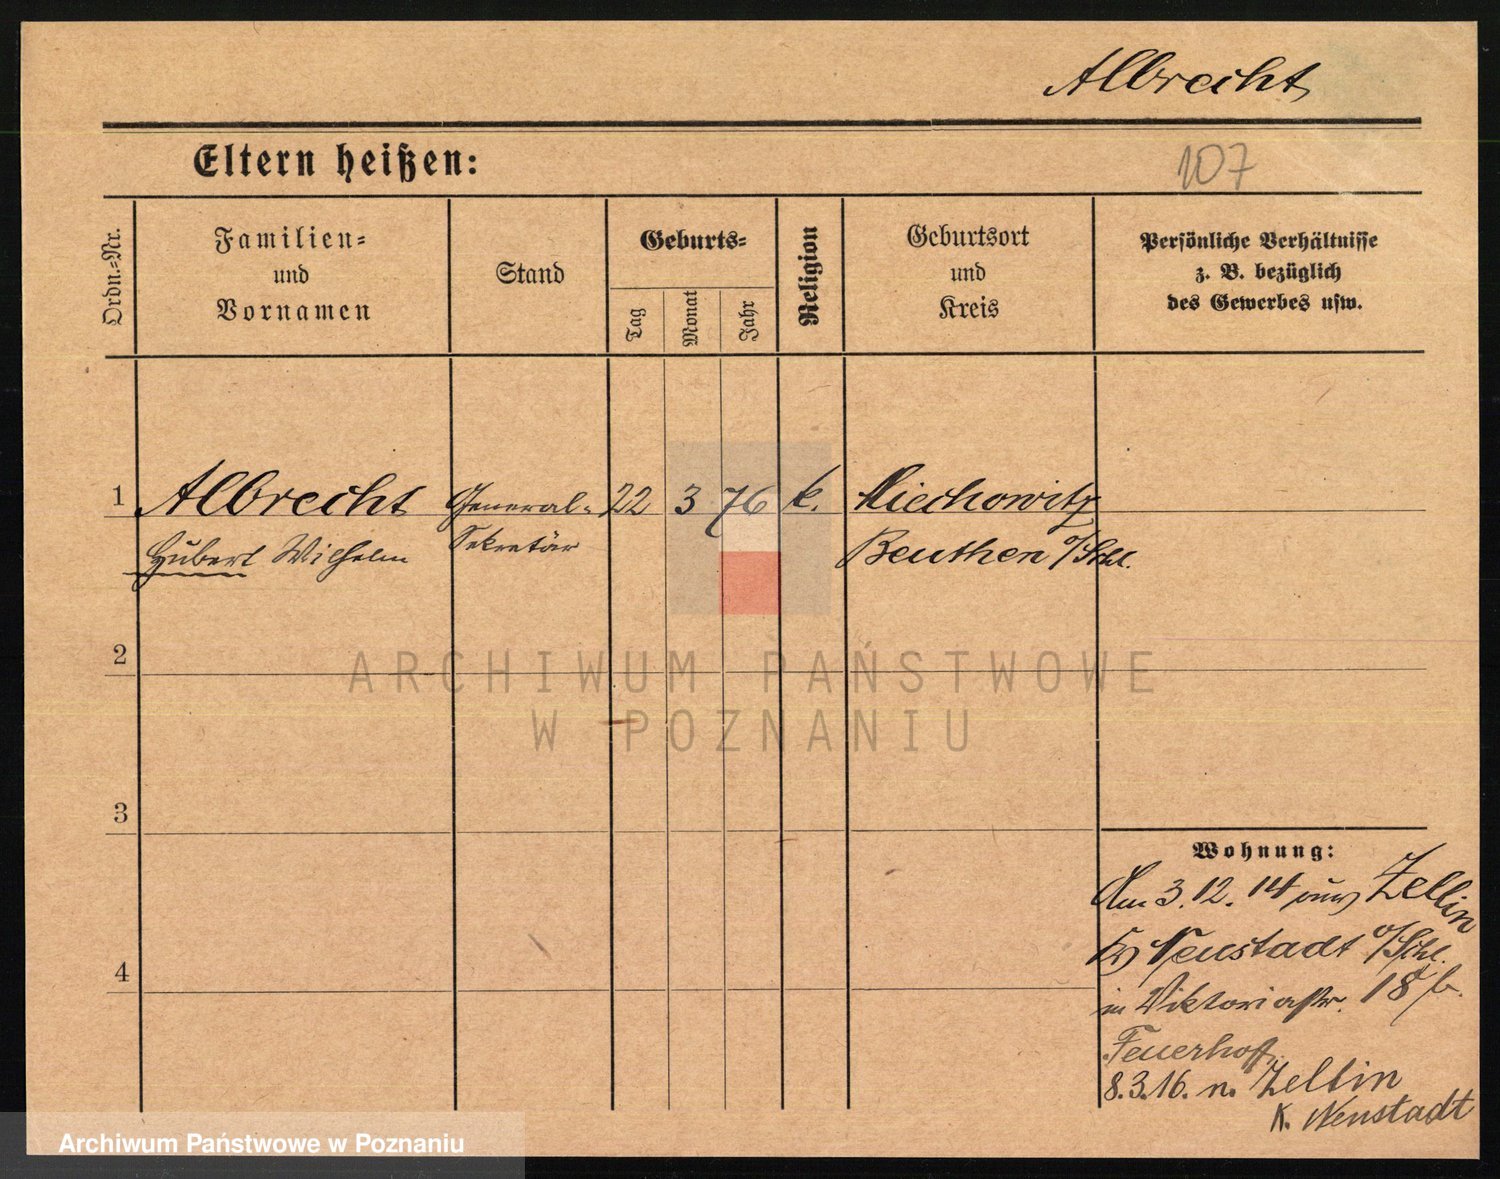 Albrecht
Eltern heißen:
107
Ordn.-Nr.
Familien-
und
Vornamen
Stand
Geburts-
Tag
Monat
Jahr
Religion
Geburtsort
und
Kreis
Persönliche Verhältnisse
z. B. bezüglich
des Gewerbes usw.
1 Albrecht General- 22 3 76 k. Miechowitz
Hubert Wilhelm Sekretär Beuthen o/Schl.
2
ARCHIWUM PAŃSTWOWE
W POZNANIU
3
Wohnung:
Am 3.12.14 aus Zellin
Neustadt o/Schl.
4
in Viktoriastr. 18 b.
Feuerhoff
8.3.16. n. Zellin
K. Neustadt
Archiwum Państwowe w Poznaniu